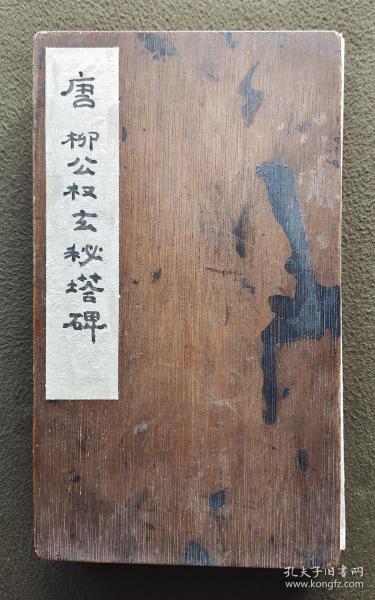 唐 柳公权玄秘塔碑
孔夫子旧书网